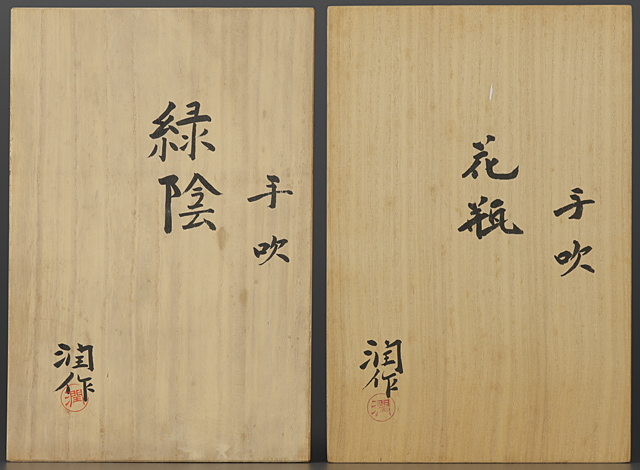 手吹
緑陰
潤作
潤
手吹
花瓶
潤作
潤